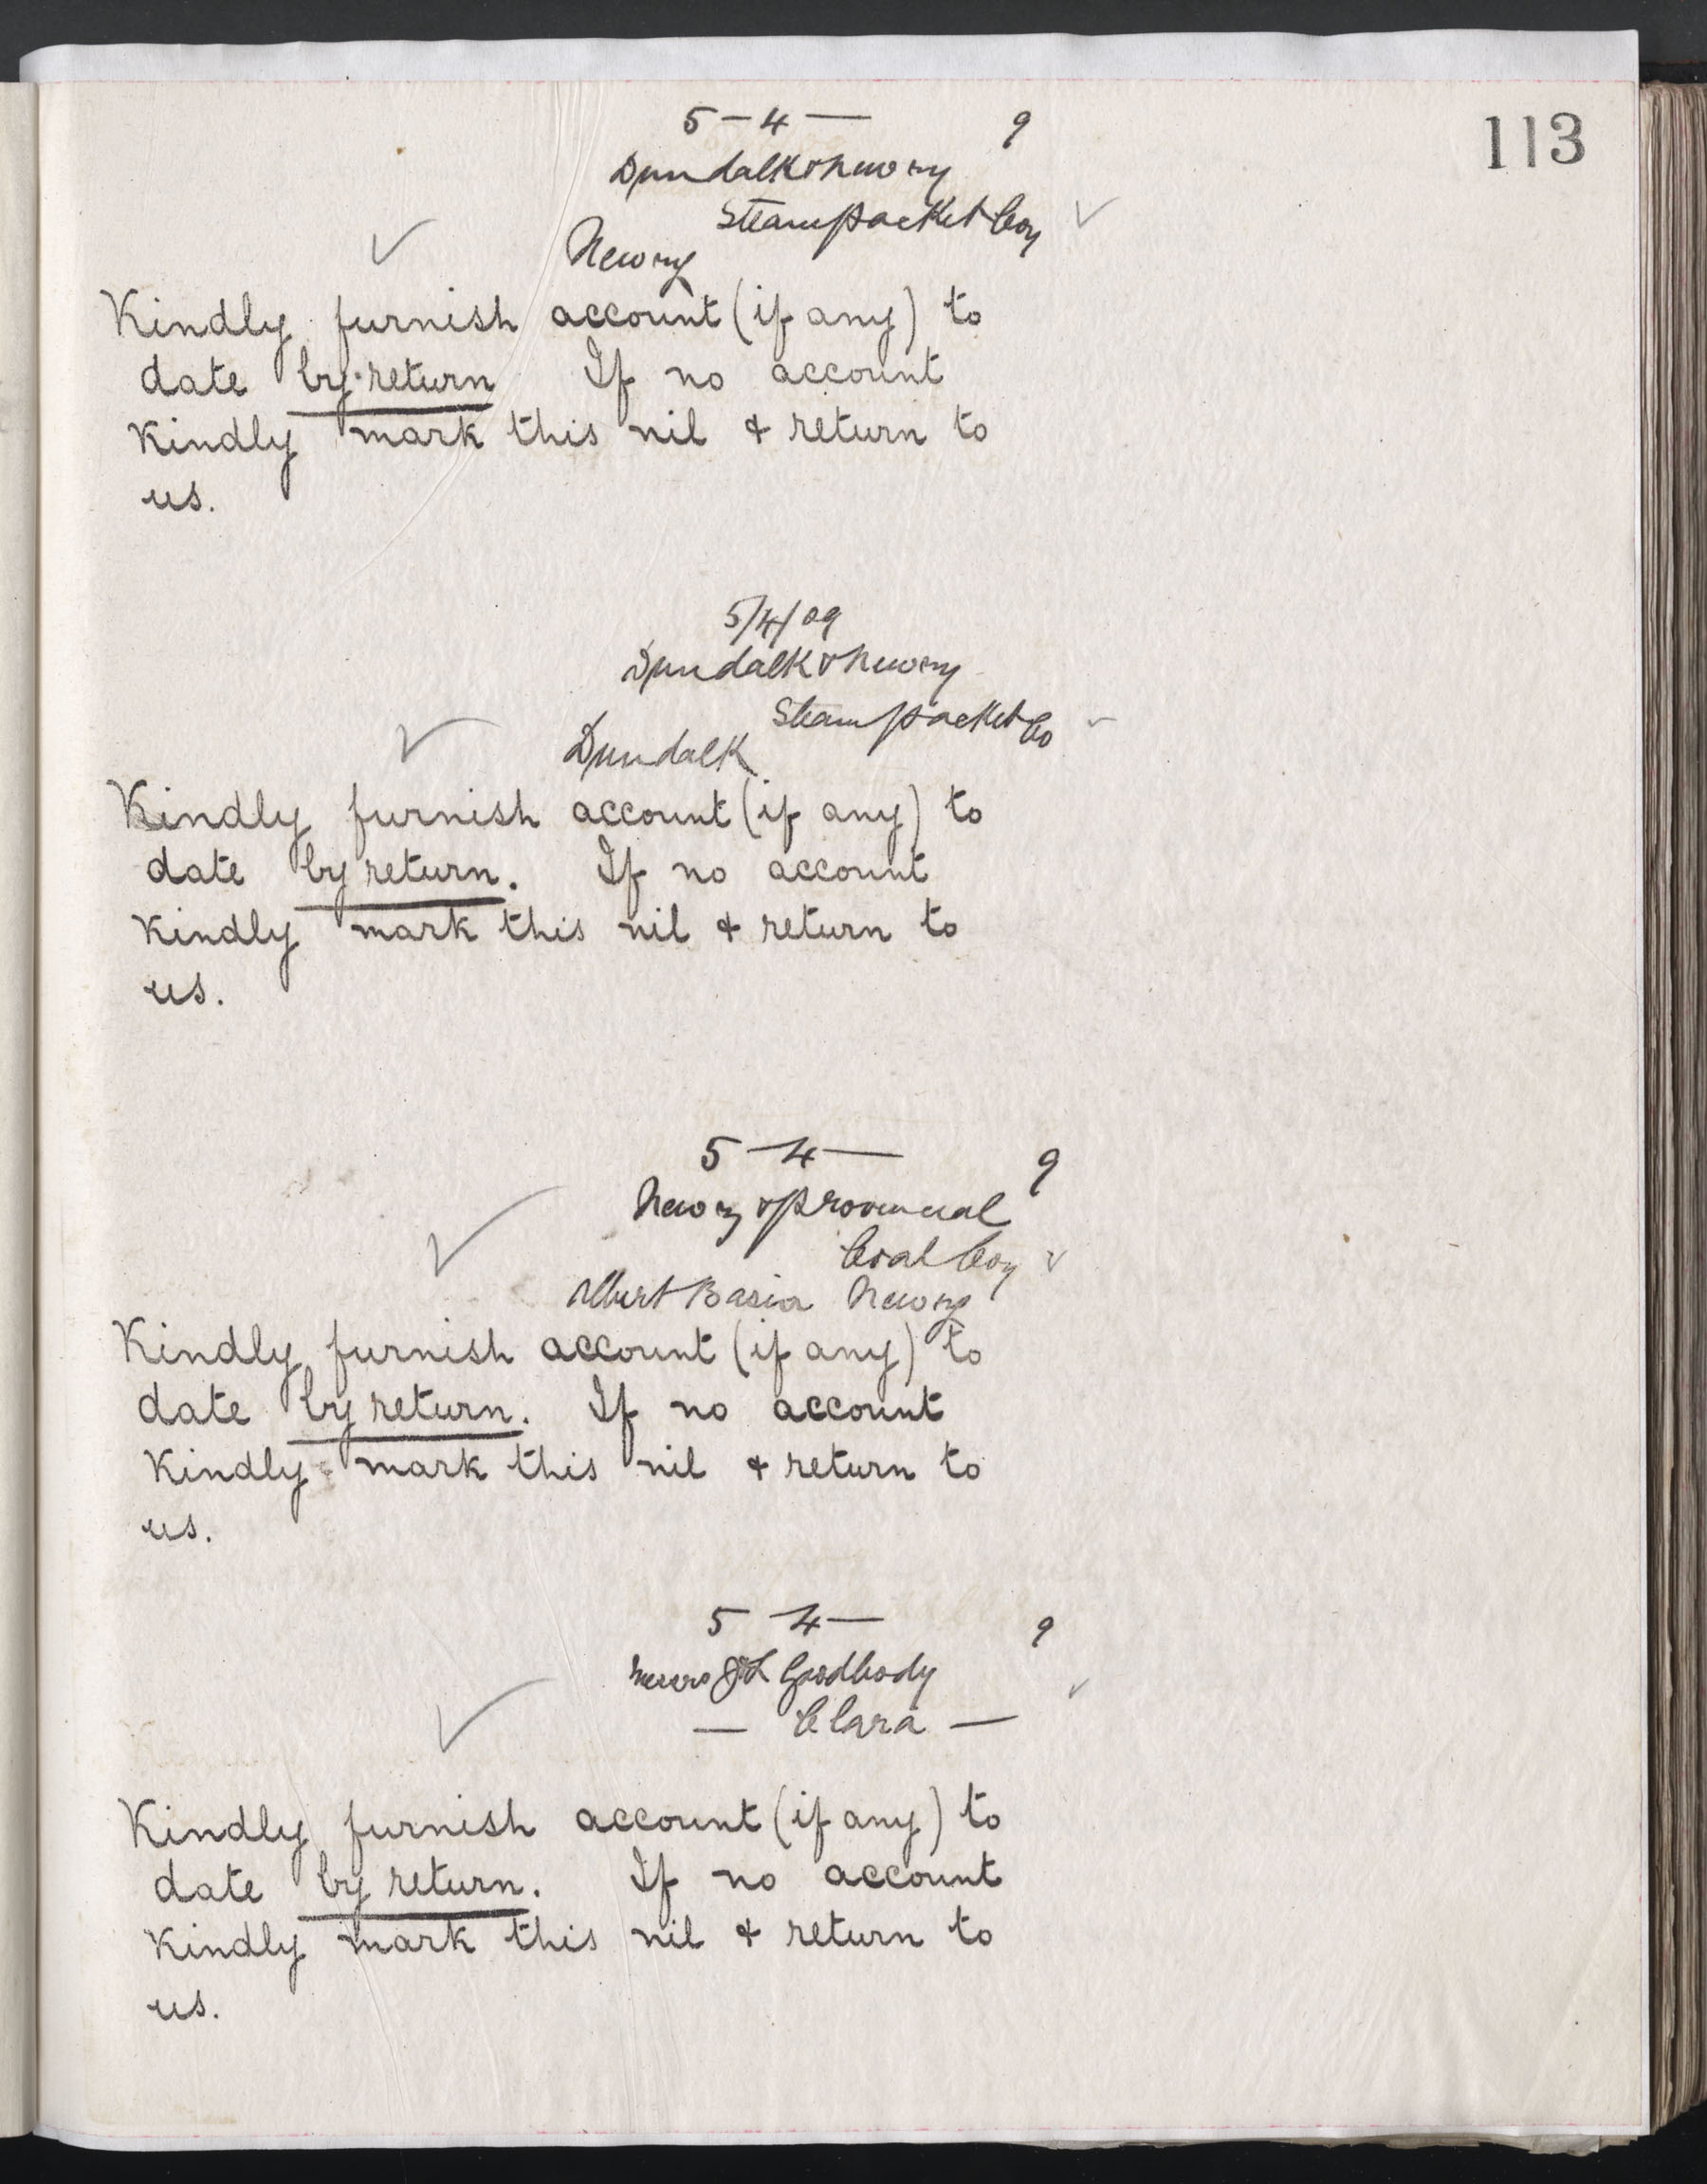 113
5 – 4 – 9
Dundalk & Newry
Steampacket Coy
Newry
Kindly furnish account (if any) to
date by return If no account
kindly mark this nil & return to
us.
5/4/09
Dundalk & Newry
Steampacket Co
Dundalk
Kindly furnish account (if any) to
date by return. If no account
kindly mark this nil & return to
us.
5 – 4 – 9
Newry & Provincial
Coal Coy
Albert Basin Newry
Kindly furnish account (if any) to
date by return. If no account
kindly mark this nil & return to
us.
5 4 – 9
Messrs J & L Goodbody
– Clara –
Kindly furnish account (if any) to
date by return. If no account
kindly mark this nil & return to
us.